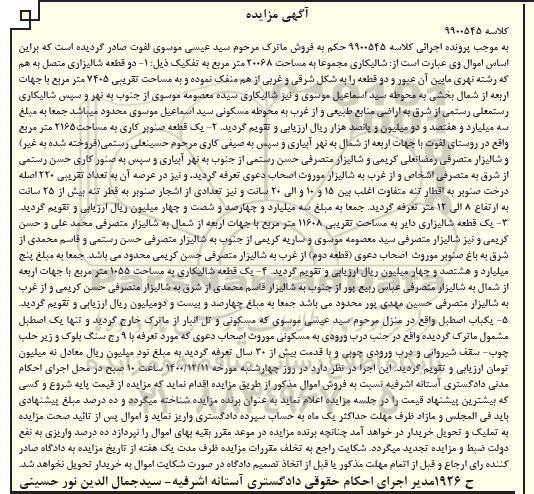 آگهی مزایده
کلاسه ۹۹۰۰۵۴۵
به موجب پرونده اجرائی کلاسه ۹۹۰۰۵۴۵ حکم به فروش ماترک مرحوم سید عیسی موسوی لفوت صادر گردیده است که براین
اساس اموال وی عبارت است از: شالیکاری مجموعا به مساحت ۲۰۰۶۸ متر مربع به تفکیک ذیل: ۱- دو قطعه شالیزاری متصل به هم
که رشته نهری مابین آن عبور و دو قطعه را به شکل شرقی و غربی از هم منفک نموده و به مساحت تقریبی ۷۴۰۵ متر مربع با جهات
اربعه از شمال بخشی به محوطه سید اسماعیل موسوی و نیز شالیکاری سیده معصومه موسوی از جنوب به نهر و سپس شالیکاری
رستمعلی رستمی از شرق به اراضی منابع طبیعی و از غرب به محوطه مسکونی سید اسماعیل موسوی محدود میباشد جمعا به مبلغ
سه میلیارد و هفتصد و دو میلیون و پانصد هزار ریال ارزیابی و تقویم گردید. ۲- یک قطعه صنوبر کاری به مساحت۲۱۶۵ متر مربع
واقع در روستای لفوت با جهات اربعه از شمال به نهر آبیاری و سپس به صیفی کاری مرحوم حسینعلی رستمی(فروخته شده به غیر)
و شالیزار متصرفی رمضانعلی کریمی و شالیزار متصرفی حسن رستمی از جنوب به نهر آبیاری و سپس به صنوبر کاری حسن رستمی
از شرق به متصرفی اشخاص و از غرب به شالیزار موروث اصحاب دعوی تعرفه گردید، و نیز در عرصه آن به تعداد تقریبی ۲۲۰ اصله
درخت صنوبر به اقطار تنه متفاوت اغلب بین ۱۵ و ۱۰ و الی ۲۰ سانت و نیز تعدادی از اشجار صنوبر به قطر تنه بیش از ۲۵ سانت
به ارتفاع ۸ الی ۱۲ متر تعرفه گردید. جمعا به مبلغ سه میلیارد و چهارصد و شصت و چهار میلیون ریال ارزیابی و تقویم گردید.
۳- یک قطعه شالیزاری دایر به مساحت تقریبی ۱۱۶۰۸ متر مربع با جهات اربعه از شمال به شالیزار متصرفی محمد علی و حسن
کریمی و نیز شالیزار متصرفی سید معصومه موسوی و ساریه کریمی از جنوب به شالیزار متصرفی حسن رستمی و قاسم محمدی از
شرق به باغ صنوبر موروث اصحاب دعوی (قطعه دوم) از غرب به شالیزار متصرفی حسن کریمی محدود می باشد. جمعا به مبلغ پنج
میلیارد و هشتصد و چهار میلیون ریال ارزیابی و تقویم گردید. ۴- یک قطعه شالیکاری به مساحت ۱۰۵۵ متر مربع با جهات اربعه
از شمال به شالیزار متصرفی عباس ربیع پور از جنوب به شالیزار قاسم محمدی از شرق به شالیزار متصرفی حسن کریمی و از غرب
به شالیزار متصرفی حسین مهدی پور محدود می باشد جمعا به مبلغ چهارصد و بیست و دومیلیون ریال ارزیابی و تقویم گردید.
۵- یکباب اصطبل واقع در منزل مرحوم سید عیسی موسوی که مسکونی و تل انبار از ماترک خارج گردید و تنها یک اصطبل
مشمول ماترک گردیده واقع در جنب درب ورودی به مسکونی موروث اصحاب دعوی که مورد تعرفه با ۹ رج سنگ بلوک و زیر حلب
چوب- سقف شیروانی و درب ورودی چوبی و با قدمت بیش از ۳۰ سال تعرفه گردید به مبلغ نود میلیون ریال معادل نه میلیون
تومان ارزیابی و تقویم گردید. این اجرا در نظر دارد در روز چهارشنبه مورخه ۱۴۰۰/۱۲/۱۱ساعت ۱۰ صبح در محل اجرای احکام
مدنی دادگستری آستانه اشرفیه نسبت به فروش اموال مذکور از طریق مزایده اقدام نماید که مزایده از قیمت پایه شروع و کسی
که بیشترین پیشنهاد قیمت را در جلسه مزایده اعلام نماید به عنوان برنده مزایده شناخته میگردد و ده درصد مبلغ پیشنهادی
باید فی المجلس و مازاد ظرف مهلت حداکثر یک ماه به حساب سپرده دادگستری واریز نماید و اموال پس از تائید صحت مزایده
به تملیک و تحویل خریدار در خواهد آمد چنانچه برنده مزایده در موعد مقرر بقیه بهای اموال را نپردازد ده درصد واریزی به نفع
دولت ضبط و مزایده تجدید میگردد. شکایت راجع به تخلف مقررات مزایده ظرف مدت یک هفته از تاریخ مزایده به دادگاه صادر
کننده رای ارجاع و قبل از اتمام مهلت مذکور یا قبل از اتخاذ تصمیم دادگاه در صورت شکایت اموال به خریدار تحویل نخواهد شد.
ح ۱۹۲۶مدیر اجرای احکام حقوقی دادگستری آستانه اشرفیه- سیدجمال الدین نور حسینی